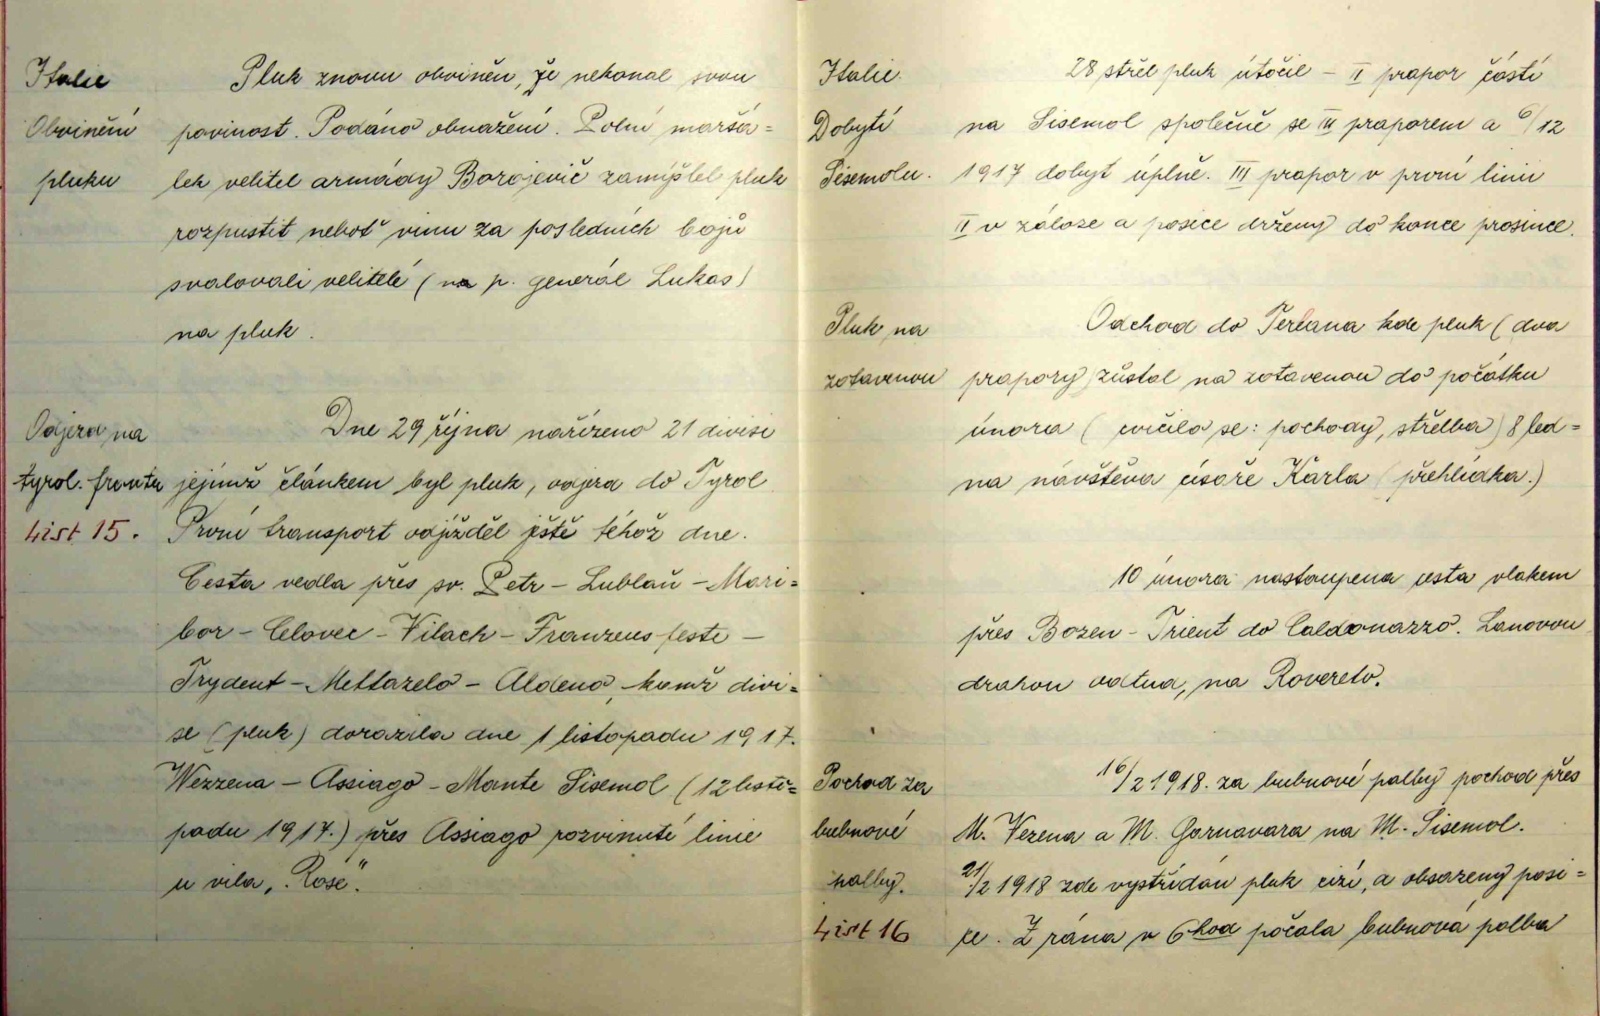 Italie
Obvinění
pluku
Pluk znovu obviněn, že nekonal svou
povinost. Podáno obnažení. Polní maršá=
lek velitel armády Borojevič zamýšlel pluk
rozpustit neboť vinu za posledních bojů
svalovali velitelé (na p. generál Lukas)
na pluk.
Odjezd na
tyrol. frontu
List 15.
Dne 29 října nařízeno 21 divisi
jejímž článkem byl pluk, odjezd do Tyrol
První transport odjížděl ještě téhož dne.
Cesta vedla přes sv. Petr - Lublaň - Mari=
bor - Celovec - Vilach - Franzensfeste -
Trydent - Mettazelo - Aldeno, kamž divi=
se (pluk) dorazila dne 1 listopadu 1917.
Wezzena - Assiago - Monte Sisemol (12 listo=
padu 1917.) přes Assiago rozvinuté linie
u vila „Rose".
Italie.
Dobytí
Sisemolu.
28 střel pluk útočil - II prapor částí
na Sisemol společně se III praporem a 6/12
1917 dobyt úplně. III prapor v první linii
II v záloze a posice drženy do konce prosince.
Pluk na
zotavenou
Odchod do Terlana kde pluk (dva
prapory) zůstal na zotavenou do počátku
února ( cvičilo se: pochody, střelba) 8 led=
na návštěva císaře Karla (přehlídka.)
10 února nastoupena cesta vlakem
přes Bozen - Trient do Caldonazzo. Lanovou
drahou odtud, na Rovereto.
Pochod za
bubnové
palby.
List 16
16/2 1918. za bubnové palby pochod přes
M. Vezena a M. Gornavara na M. Sisemol.
21/2 1918 zde vystřídán pluk cizí, a obsazeny posi=
ce. Z rána v 6 hod počala bubnová palba